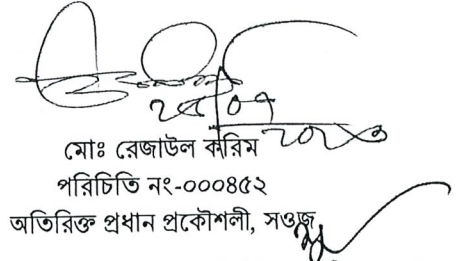 ২৫/০৭
২০২৩
মোঃ রেজাউল করিম
পরিচিতি নং-০০০৪৫২
অতিরিক্ত প্রধান প্রকৌশলী, সওজ